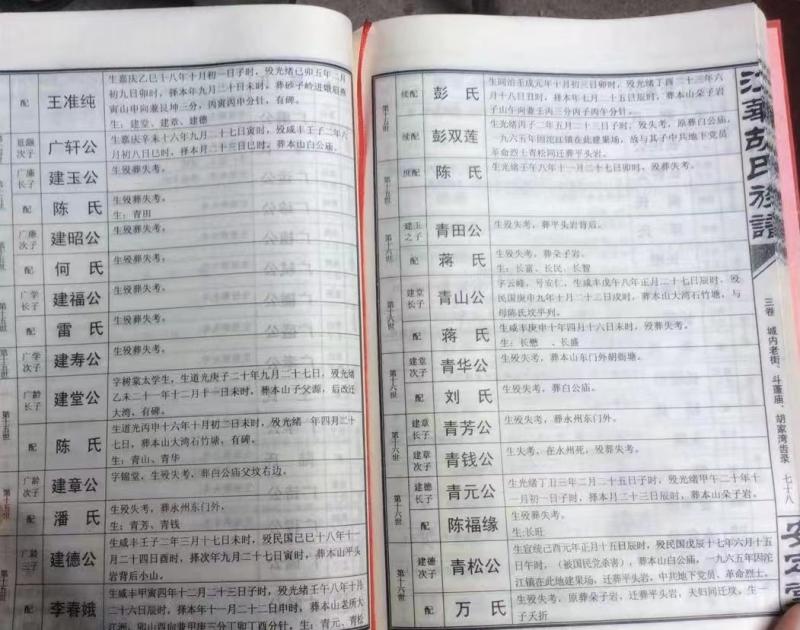 配
王淮纯
生嘉庆乙巳十八年十月初一日子时，殁光绪己卯五年二月
初九日卯时，择本年九月二十日未时，葬砂子岭进娥后燕
寅山申向兼艮坤三分，丙寅丙申分针，有碑。
生：建堂、建章、建德
次子
广轩公
生嘉庆辛未十六年九月二十七日寅时，殁咸丰壬子二年六
月初八日巳时，择本月二十三日巳时。葬本山白公庙。
广廉
长子
建玉公
生殁葬失考。
配
陈 氏
生殁葬失考。
生：青田
广廉
次子
建昭公
生殁葬失考。
配
何 氏
生殁葬失考。
广学
长子
建福公
生殁葬失考。
配
雷 氏
生殁葬失考。
广学
次子
建寿公
生殁葬失考。
广龄
长子
建堂公
字树棠太学生，生道光庚子二十年九月二十七日，殁光绪
乙未二十一年十二月十一日未时，葬本山子父源，后改迁
大湾，有碑。
配
陈 氏
生道光丙申十六年十月初二日未时，殁光绪 年四月二十
七日，葬本山大湾石竹塘，有碑。
生：青山、青华
广龄
次子
建章公
字锦堂，生殁失考，葬白公庙父坟右边。
配
潘 氏
生殁失考，葬永州东门外，
生：青芳、青钱
广龄
三子
建德公
生咸丰壬子二年三月十七日未时，殁民国己巳十八年十一
月二十四日酉时，择次年九月二十七日寅时，葬本山平头
岩背后小山。
配
李春娥
生咸丰甲寅四年十二月二十三日子时，殁光绪壬午八年十月
二十六日辰时，择本年十一月二十二日申时，葬本山老所大
生：青元、青松
续配
彭 氏
生同治壬戌元年十月初三日卯时，殁光绪丁酉二十三年六
月十八日丑时，择本年七月二十五日辰时，葬本山朵子岩
子山午向兼壬丙三分丙子丙午分针。
续配
彭双莲
生光绪丙子二年五月二十三日子时，殁失考，原葬白公庙，
一九六五年因沱江镇在此建果场，故与其子中共地下党员
革命烈士青松同迁葬平头岩。
陈 氏
生光绪壬午八年十一月二十七日卯时，殁葬失考。
第十六世
建玉
之子
青田公
生殁失考，葬平头岩背后。
配
蒋 氏
生殁失考，葬朵子岩。
生：长富、长民、长智
第十六世
建堂
长子
青山公
字云峰，号安仁，生咸丰戊午八年正月二十七日辰时，殁
民国庚申九年十月二十二日戌时，葬本山大湾石竹塘，与
母陈氏坟平列。
配
蒋 氏
生咸丰庚申十年四月十六日未时，殁葬失考。
生：长懋 、长盛
第十六世
建堂
次子
青华公
生殁失考，葬本山东门外胡衙塘。
配
刘 氏
生殁失考，葬白公庙。
第十六世
建章
长子
青芳公
生殁失考，葬永州东门外。
建章
次子
青钱公
生失考，在永州死，殁葬失考。
第十六世
建德
长子
青元公
生光绪丁丑三年二月二十五日子时，殁光绪甲午二十年十
一月初一日子时，择本月二十三日辰时，葬本山朵子岩。
配
陈福缘
生殁葬失考。
生:长旺
第十六世
建德
次子
青松公
生宣统己酉元年正月十五日辰时，殁民国戊辰十七年六月十五
日午时，（被国民党杀害），葬本山白公庙，一九六五年因沱
江镇在此地建果场，迁葬平头岩，中共地下党员、革命烈士。
配
万 氏
生殁失考，原葬朵子岩，迁葬平头岩，夫妇同迁坟，生：一
子夭折
江华胡氏族谱
三卷
城内老街、斗蓬庙、胡家湾齿录
七十八
安定